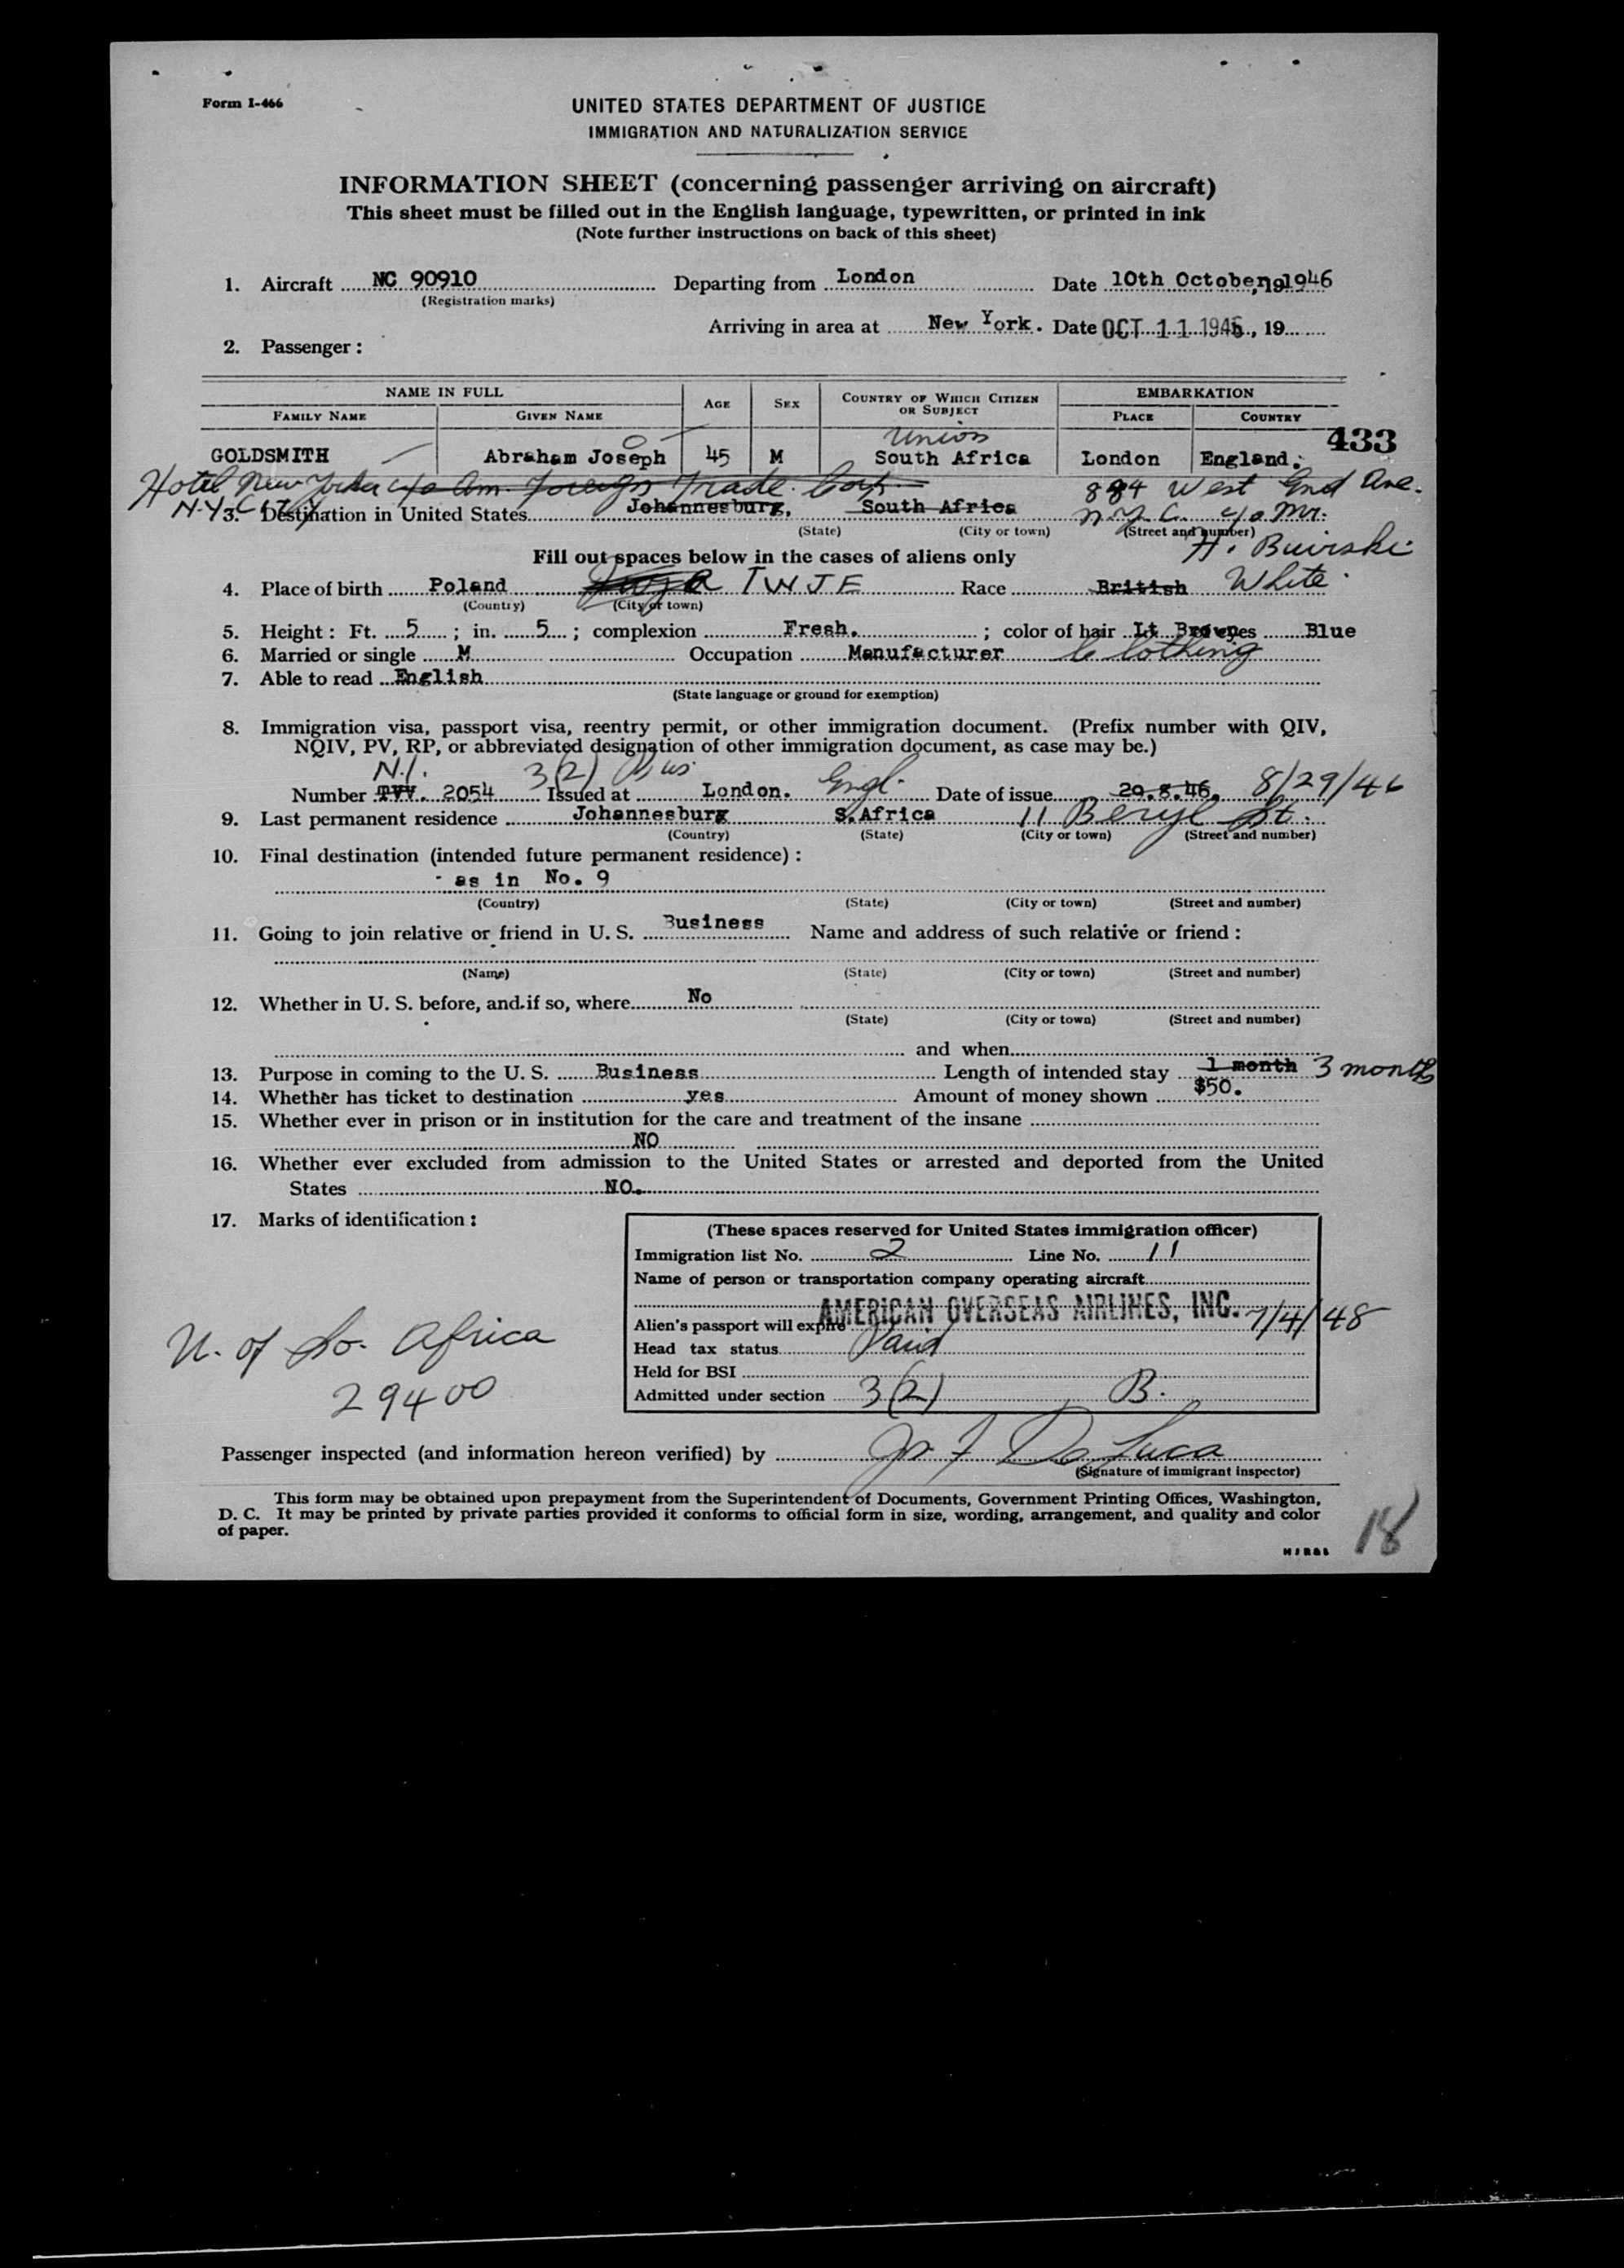 Form I-466
UNITED STATES DEPARTMENT OF JUSTICE
IMMIGRATION AND NATURALIZATION SERVICE
INFORMATION SHEET (concerning passenger arriving on aircraft)
This sheet must be filled out in the English language, typewritten, or printed in ink
(Note further instructions on back of this sheet)
1. Aircraft NC 90910 Departing from London Date 10th October, 1946
(Registration marks)
Arriving in area at New York. Date OCT 11 1946, 19
2. Passenger:
NAME IN FULL AGE SEX COUNTRY OF WHICH CITIZEN OR SUBJECT EMBARKATION
FAMILY NAME GIVEN NAME PLACE COUNTRY
Union 433
GOLDSMITH Abraham Joseph 45 M South Africa London England.
Hotel New Yorker c/o Am. Foreign Trade Corp. 884 West End Ave.
N.Y. City
3. Destination in United States Johannesburg, South Africa N.Y.C. c/o Mr.
(State) (City or town) (Street and number)
H.
Fill out spaces below in the cases of aliens only
4. Place of birth Poland TWJE Race British White.
(Country) (City or town)
5. Height: Ft. 5; in. 5; complexion Fresh.; color of hair Lt Brown eyes Blue
6. Married or single M Occupation Manufacturer Clothing
7. Able to read English
(State language or ground for exemption)
8. Immigration visa, passport visa, reentry permit, or other immigration document. (Prefix number with QIV,
NQIV, PV, RP, or abbreviated designation of other immigration document, as case may be.)
N.I. 3(2) Bus.
Number TVV. 2054 Issued at London. Engl. Date of issue 29.8.46. 8/29/46
9. Last permanent residence Johannesburg S.Africa 11 Beryl St.
(Country) (State) (City or town) (Street and number)
10. Final destination (intended future permanent residence):
as in No. 9
(Country) (State) (City or town) (Street and number)
11. Going to join relative or friend in U. S. Business Name and address of such relative or friend:
(Name) (State) (City or town) (Street and number)
12. Whether in U. S. before, and if so, where No
(State) (City or town) (Street and number)
and when
13. Purpose in coming to the U. S. Business Length of intended stay 1 month 3 months
14. Whether has ticket to destination yes Amount of money shown $50.
15. Whether ever in prison or in institution for the care and treatment of the insane
NO
16. Whether ever excluded from admission to the United States or arrested and deported from the United
States NO.
17. Marks of identification:
(These spaces reserved for United States immigration officer)
Immigration list No. 2 Line No. 11
Name of person or transportation company operating aircraft
AMERICAN OVERSEAS AIRLINES, INC.
Alien's passport will expire 7/4/48
Head tax status Paid
Held for BSI
Admitted under section 3(2) B.
U. of So. Africa
29400
Passenger inspected (and information hereon verified) by Jos. F De Luca
(Signature of immigrant inspector)
This form may be obtained upon prepayment from the Superintendent of Documents, Government Printing Offices, Washington,
D. C. It may be printed by private parties provided it conforms to official form in size, wording, arrangement, and quality and color
of paper.
18